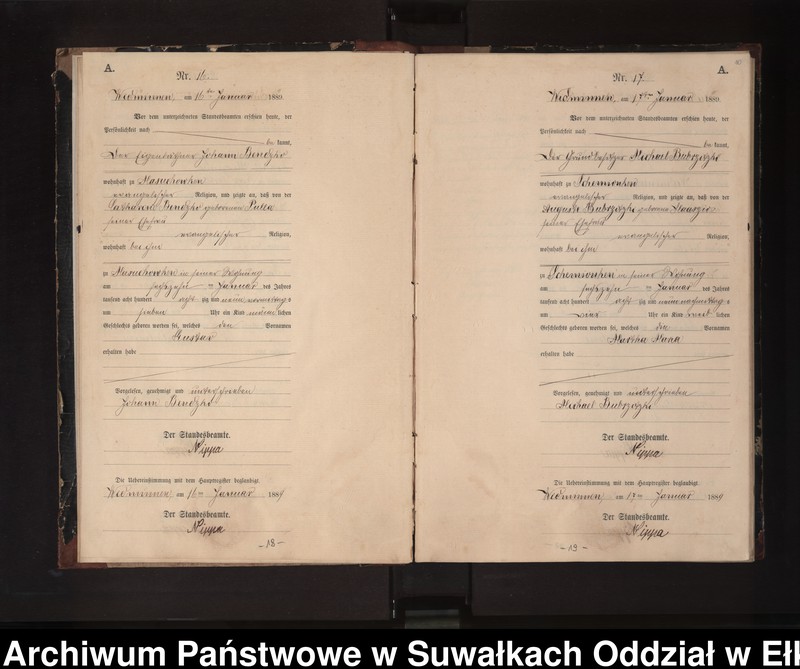 A.
Nr. 16.
Widminnen am 16ten Januar 1889.
Vor dem unterzeichneten Standesbeamten erschien heute, der
Persönlichkeit nach
be kannt,
Der Eigenkäthner Johann Bendzko
wohnhaft zu Masuchowken
evangelischer Religion, und zeigte an, daß von der
Bendzko geborenen Pulla
seiner Ehefrau
evangelischer Religion,
wohnhaft bei ihm
zu Masuchowken in seiner Wohnung
am sechszehn ten Januar des Jahres
tausend acht hundert acht zig und neun Vormittags
um sieben Uhr ein Kind männ lichen
Geschlechts geboren worden sei, welches den Vornamen
Gustav
erhalten habe
Vorgelesen, genehmigt und unterschrieben
Johann Bendzko
Der Standesbeamte.
Nippa
Die Uebereinstimmung mit dem Hauptregister beglaubigt.
Widminnen am 16ten Januar 1889
Der Standesbeamte.
Nippa
- 18 -
A.
Nr. 17
Widminnen, am 17ten Januar 1889.
Vor dem unterzeichneten Standesbeamten erschien heute, der
Persönlichkeit nach
be kannt,
Der Grundbesitzer Michael Bubrozki
wohnhaft zu
evangelischer Religion, und zeigte an, daß von der
Auguste Bubrozki geborene
seiner Ehefrau
evangelischer Religion,
wohnhaft bei ihm
zu in seiner Wohnung
am sechszehn ten Januar des Jahres
tausend acht hundert acht zig und neun Nachmittags
um Uhr ein Kind weib lichen
Geschlechts geboren worden sei, welches die Vornamen
Martha Maria
erhalten habe
Vorgelesen, genehmigt und unterschrieben
Michael Bubrozki
Der Standesbeamte.
Nippa
Die Uebereinstimmung mit dem Hauptregister beglaubigt.
Widminnen am 17ten Januar 1889
Der Standesbeamte.
Nippa
- 19 -
Archiwum Państwowe w Suwałkach Oddział w Ełk